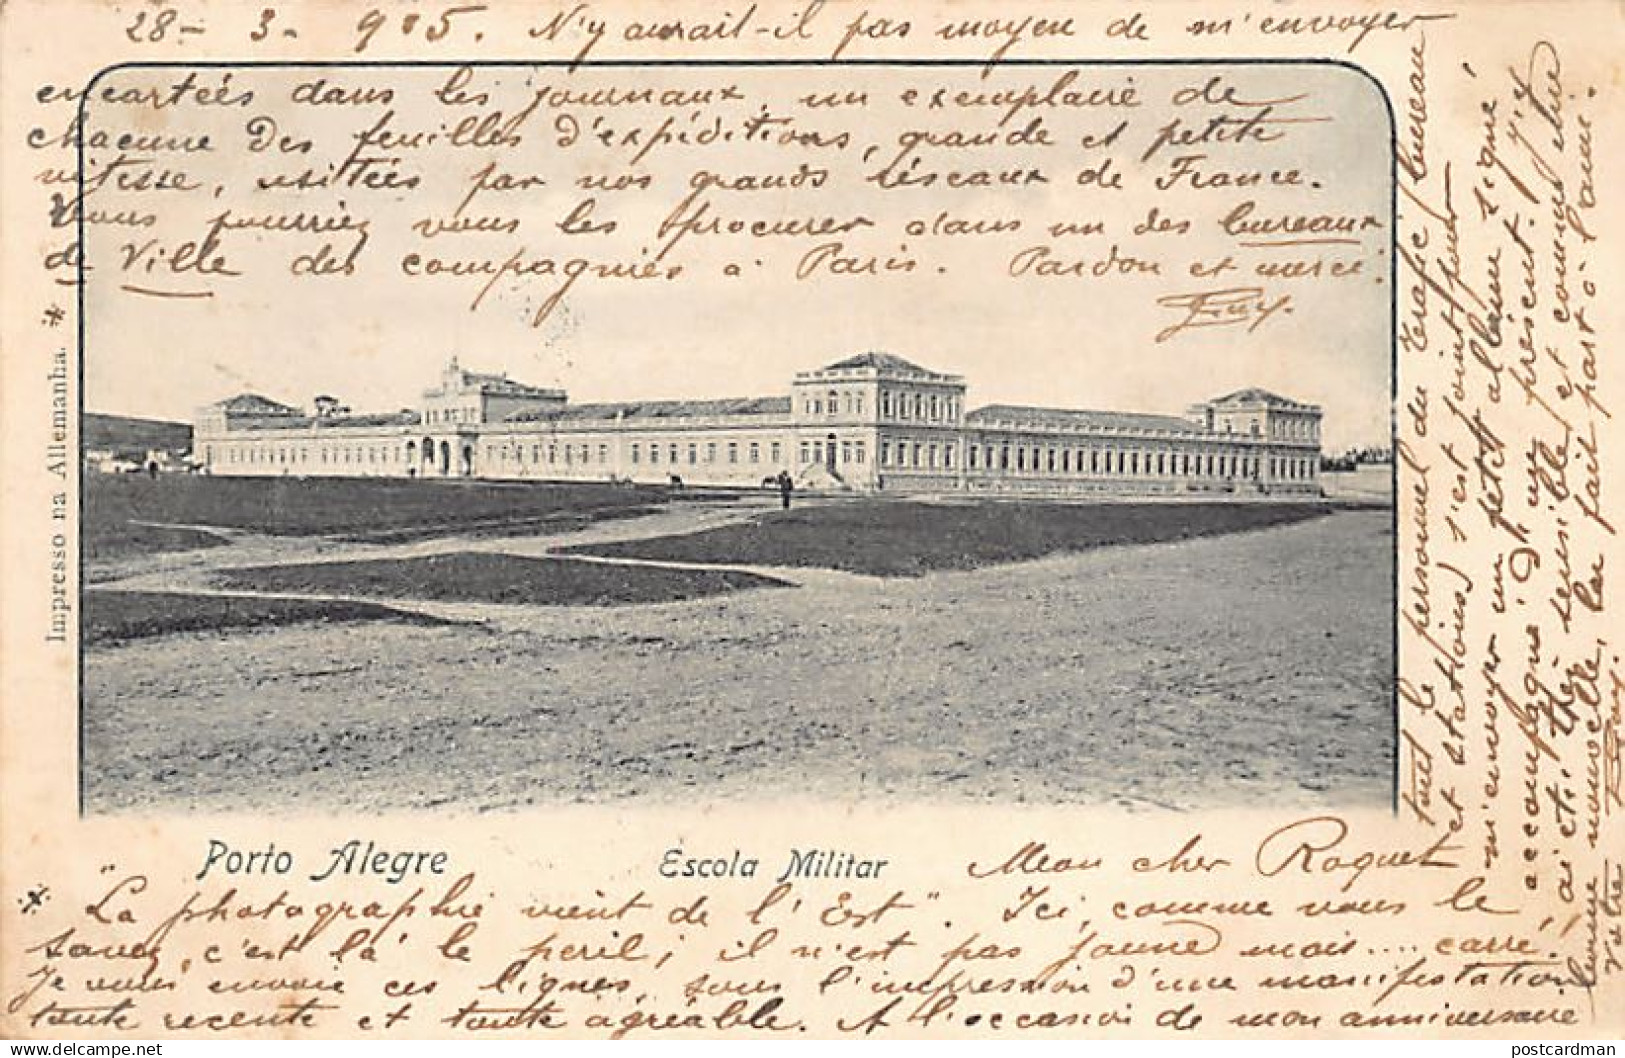 28 - 3 - 905. N'y aurait-il pas moyen de m'envoyer
encartées dans les journaux, un exemplaire de
chacune des feuilles d'expéditions, grande et petite
vitesse, usitées par nos grands réseaux de France.
Vous pourriez vous les procurer dans un des bureaux
de Ville des compagnies à Paris. Pardon et merci.
Impresso na Allemanha.
Porto Alegre
Escola Militar
Mon cher Roquet
"La photographie vient de l'Est". Ici, comme vous le
savez, c'est là le peril; il n'est pas jaune mais.... carré!
Je vous envoie ces lignes, sous l'impression d'une manifestation
toute recente et toute agréable. A l'occasion de mon anniversaire
tout le personnel du Trafic (bureau
et stations) s'est joint pour
m'envoyer un petit album signé
accompagné d'un présent. J'y
ai été très sensible, et comme une
bonne nouvelle, la fait part à l'ami.
Votre